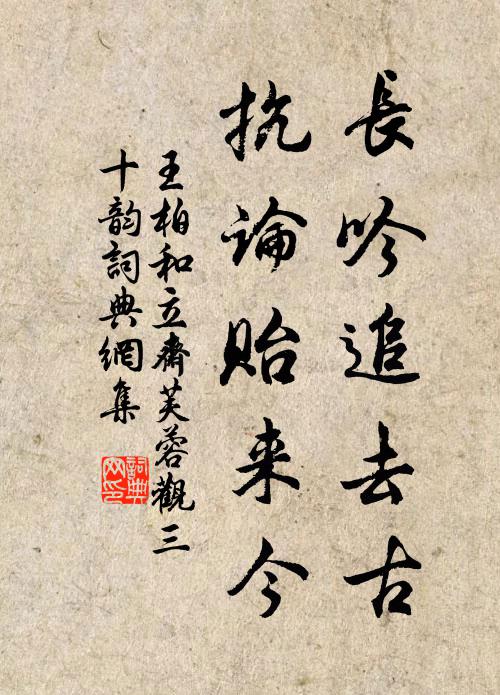 長吟追去古
抗論貽来今
王柏和立齋芙蓉觀三
十韵詞典網集
詞典网印